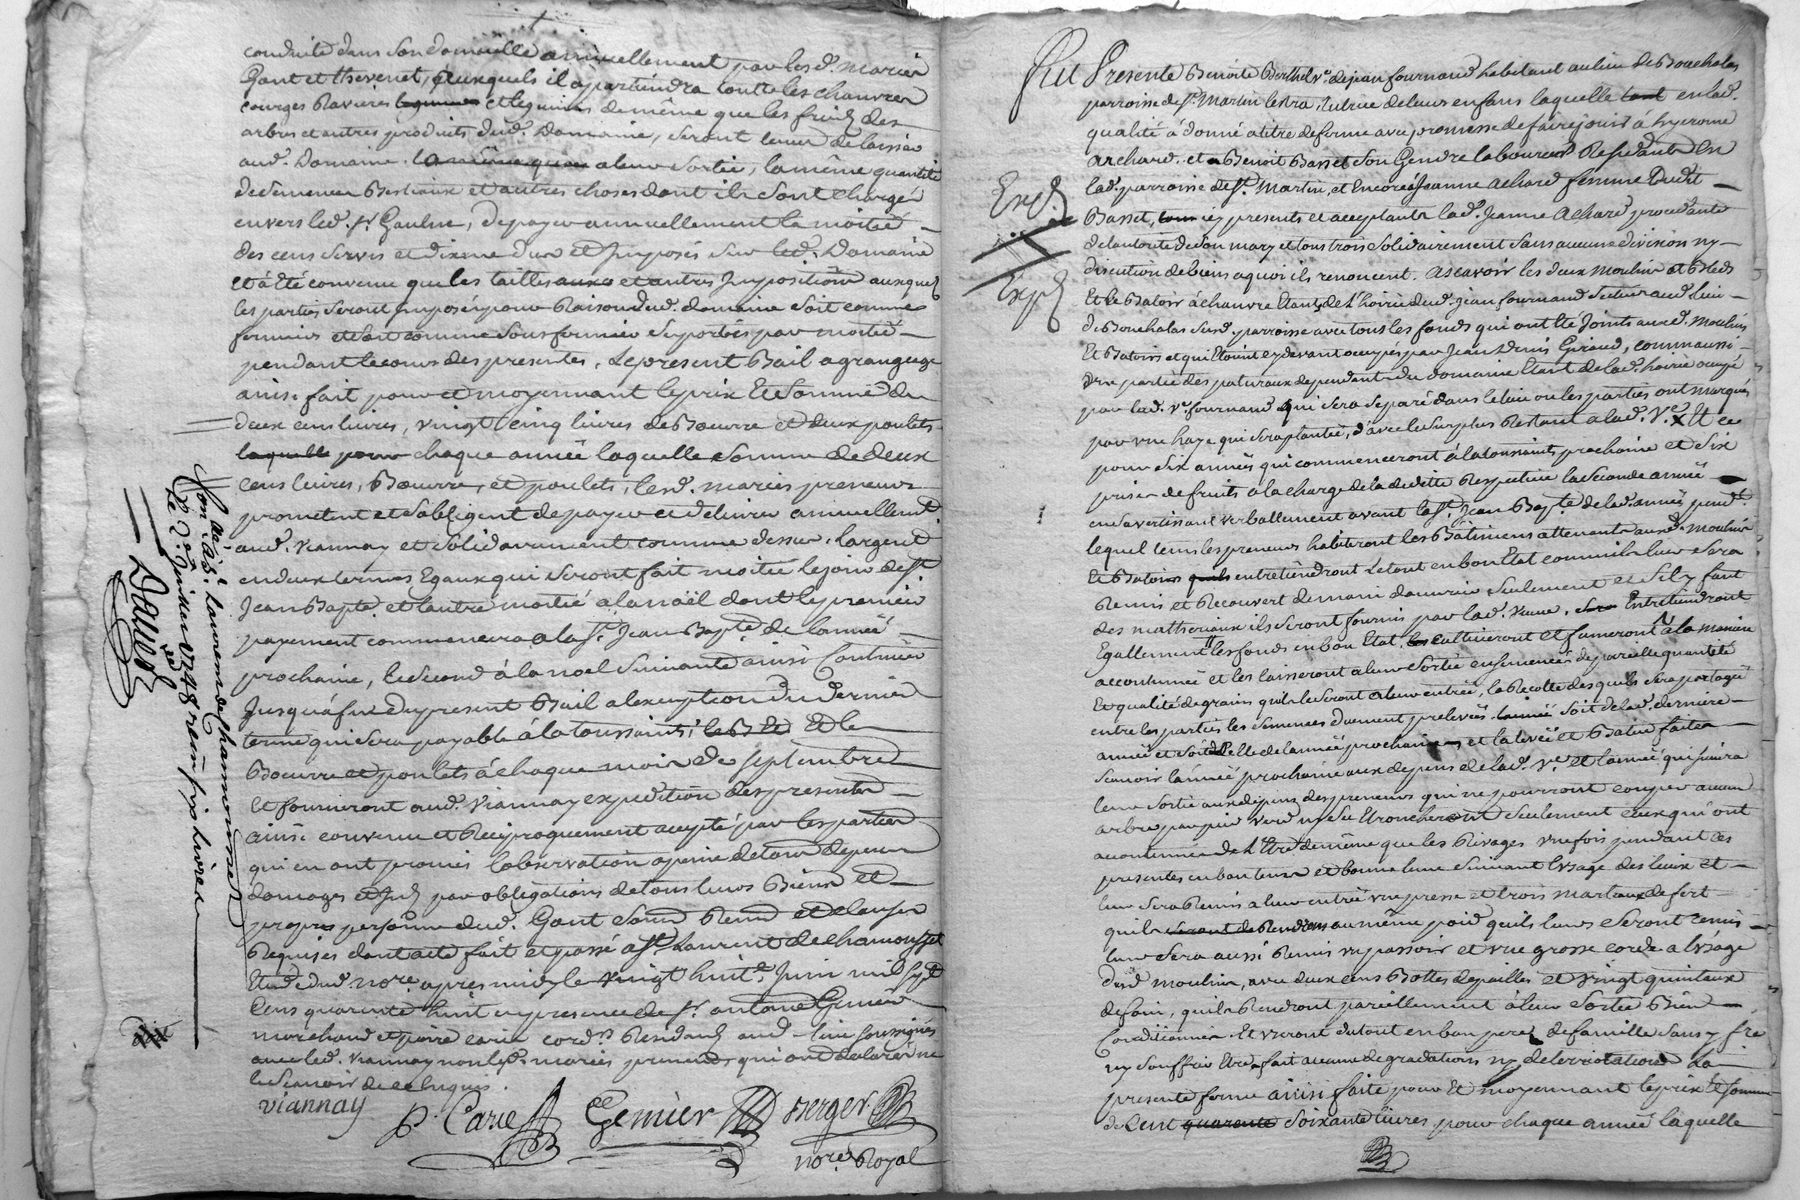 conduite dans son domicille annuellement par lesd. mariés
Gont et thevenet, auxquels il apartiendra toutte les chanvres
courges Ravieres et legumes de même que les fruits des
arbres et autres produits dud. Domaine, seront tenus de laisser
aud. Domaine a leur sortie, la même quantité
de semence Bestiaux et autres choses dont ils sont chargé
envers led. sr Gaulne, de payer annuellement la moitié
des cens servis et dixme dus et imposés sur led. Domaine
et a été convenu que les tailles et autres Impositions ausquels
les parties seront imposés pour Raison dud. domaine soit comme
fermiers et soit comme sousfermier suportés par moitié
pendant le cours des presentes. Le present Bail a grangeage
ainsi fait pour et moyennant le prix et somme de
deux cens livres, vingt cinq livres de Boeurre et deux poulets
laquelle pour chaque année laquelle somme de deux
cens livres, Boeurre, et poulets, lesd. mariés preneurs
promettent et s'obligent de payer et delivrer annuellemt.
aud. viannay et solidairement comme dessus. l'argent
en deux termes Egaux qui seront fait moitié le jour de st.
Jean Bapte. et l'autre moitié a la noël dont le premier
payement commencera a la st. Jean Bapte. de l'année
prochaine, le second á la noel suivante ainsi Continuer
jusquá fin du present Bail a l'exception du dernier
terme qui sera payable á la toussaints, et le
Boeurre et poulets á chaque mois de septembre
Et fourniront aud. viannay expedition des presentes
ainsi convenu et Reciproquement accepté par les parties
qui en ont promis l'observation a peine de tous depens
domages et par obligations de tous leurs Biens et
propres personne dud. Gont sousd. Renon. et clauses
Requises dont acte fait et passé a st. Laurent de chamousset
Etude dud. nore. apres midy le vingt huite. Juin mil sept
Cens quarante huit en presence de sr. antoine Genier
marchand et pierre carie cordr. Residants aud. lieu soussignés
avec led. viannay non lesd. mariés preneurs qui ont declarés ne
le scavoir de ce Enquis.
viannay P. Carie Genier Berger
nore. Royal
Con. á st. Laurent de chamousset
le 2e. Juillet 1748
Exp.
Exp.
Fut Presente Benoite Berthet ve. de jean fournand habitant au lieu de Bouchalas
parroisse de st. Martin lestra, tutrice de leurs enfans laquelle tant en lad.
qualité á donné a titre de ferme avec promesse de faire jouir á hyerome
archard. et a Benoit Basset son Gendre laboureurs Residants en
lad. parroisse de st. Martin, et Encore á Jeanne achard femme Dudit
Basset, icy presents et acceptants lad. Jeanne achard procedante
de l'autorité de son mary et tous trois solidairement sans aucune division ny
discution de biens a quoi ils renoncent. ascavoir les deux moulins et Bleds
Et le Batoir á chanvre Etants de l'hoirie dud. jean fournand scitués aud. lieu
de Bouchalas susd. parroisse avec tous les fonds qui ont été Joints auxd. moulins
Et Batoirs et qui Etoient cy devant occupés par Jean Denis Giraud, comm'aussi
une partie des paturaux dependants du domaine Etant de lad. hoirie occupé
par lad. ve. fournand qui sera separé dans le lieu ou les parties ont marqué
par une haye qui sera plantée, d'avec le surplus Restant a lad. Ve. Et ce
pour six années qui commenceront á la toussaints prochaine et six
prises de fruits a la charge de la deditte Respective la seconde année
en s'avertissant verballement avant la st. Jean Bapte. de lad. année pend.
lequel tems les preneurs habiteront les Bâtimens attenants auxd. moulins
Et Batoirs entretiendront Le tout en bon Etat comm'il leur sera
Remis et Recouvert de main d'ouvrier seulement et s'il y faut
des matheriaux ils seront fournis par lad. veuve, Entretiendront
Egallement les fonds en bon Etat, les cultiveront et fumeront á la maniere
accoutumée et les laisseront a leur sortie ensemencés de pareille quantité
Et qualité de grains qu'ils le seront a leur entrée, la Recolte desquels sera partagée
entre les parties les semences duement prelevées soit de lad. derniere
année et soit de celle de l'année prochaine et la levée et Batue faites
scavoir l'année prochaine aux depens de lad. ve. et l'année qui suivra
leur sortie aux depens des preneurs qui ne pourront couper aucun
arbre par pied verd ny sec troncheront seulement ceux qui ont
accoutumée de l'Etre de même que les Rivages une fois pendant les
presentes en bon tems et bonne lune suivant l'usage des lieux et
leur sera Remis a leur entrée une presse et trois marteaux de fert
qu'ils Rendront au même poid qu'ils leurs seront remis
leur sera aussi Remis un passoir et une grosse corde a l'usage
dud. moulin, avec deux cens Bottes de pailles et vingt quintaux
de foin, qu'ils Rendront pareillement á leur sortie Bien
Conditionnés. Et useront du tout en bon peres de famille sans y fre.
ny souffrir Etre fait aucune degradations ny deterioration. La
presente ferme ainsi faite pour et moyennant le prix et somme
de Cent quarante soixante livres pour chaque année laquelle